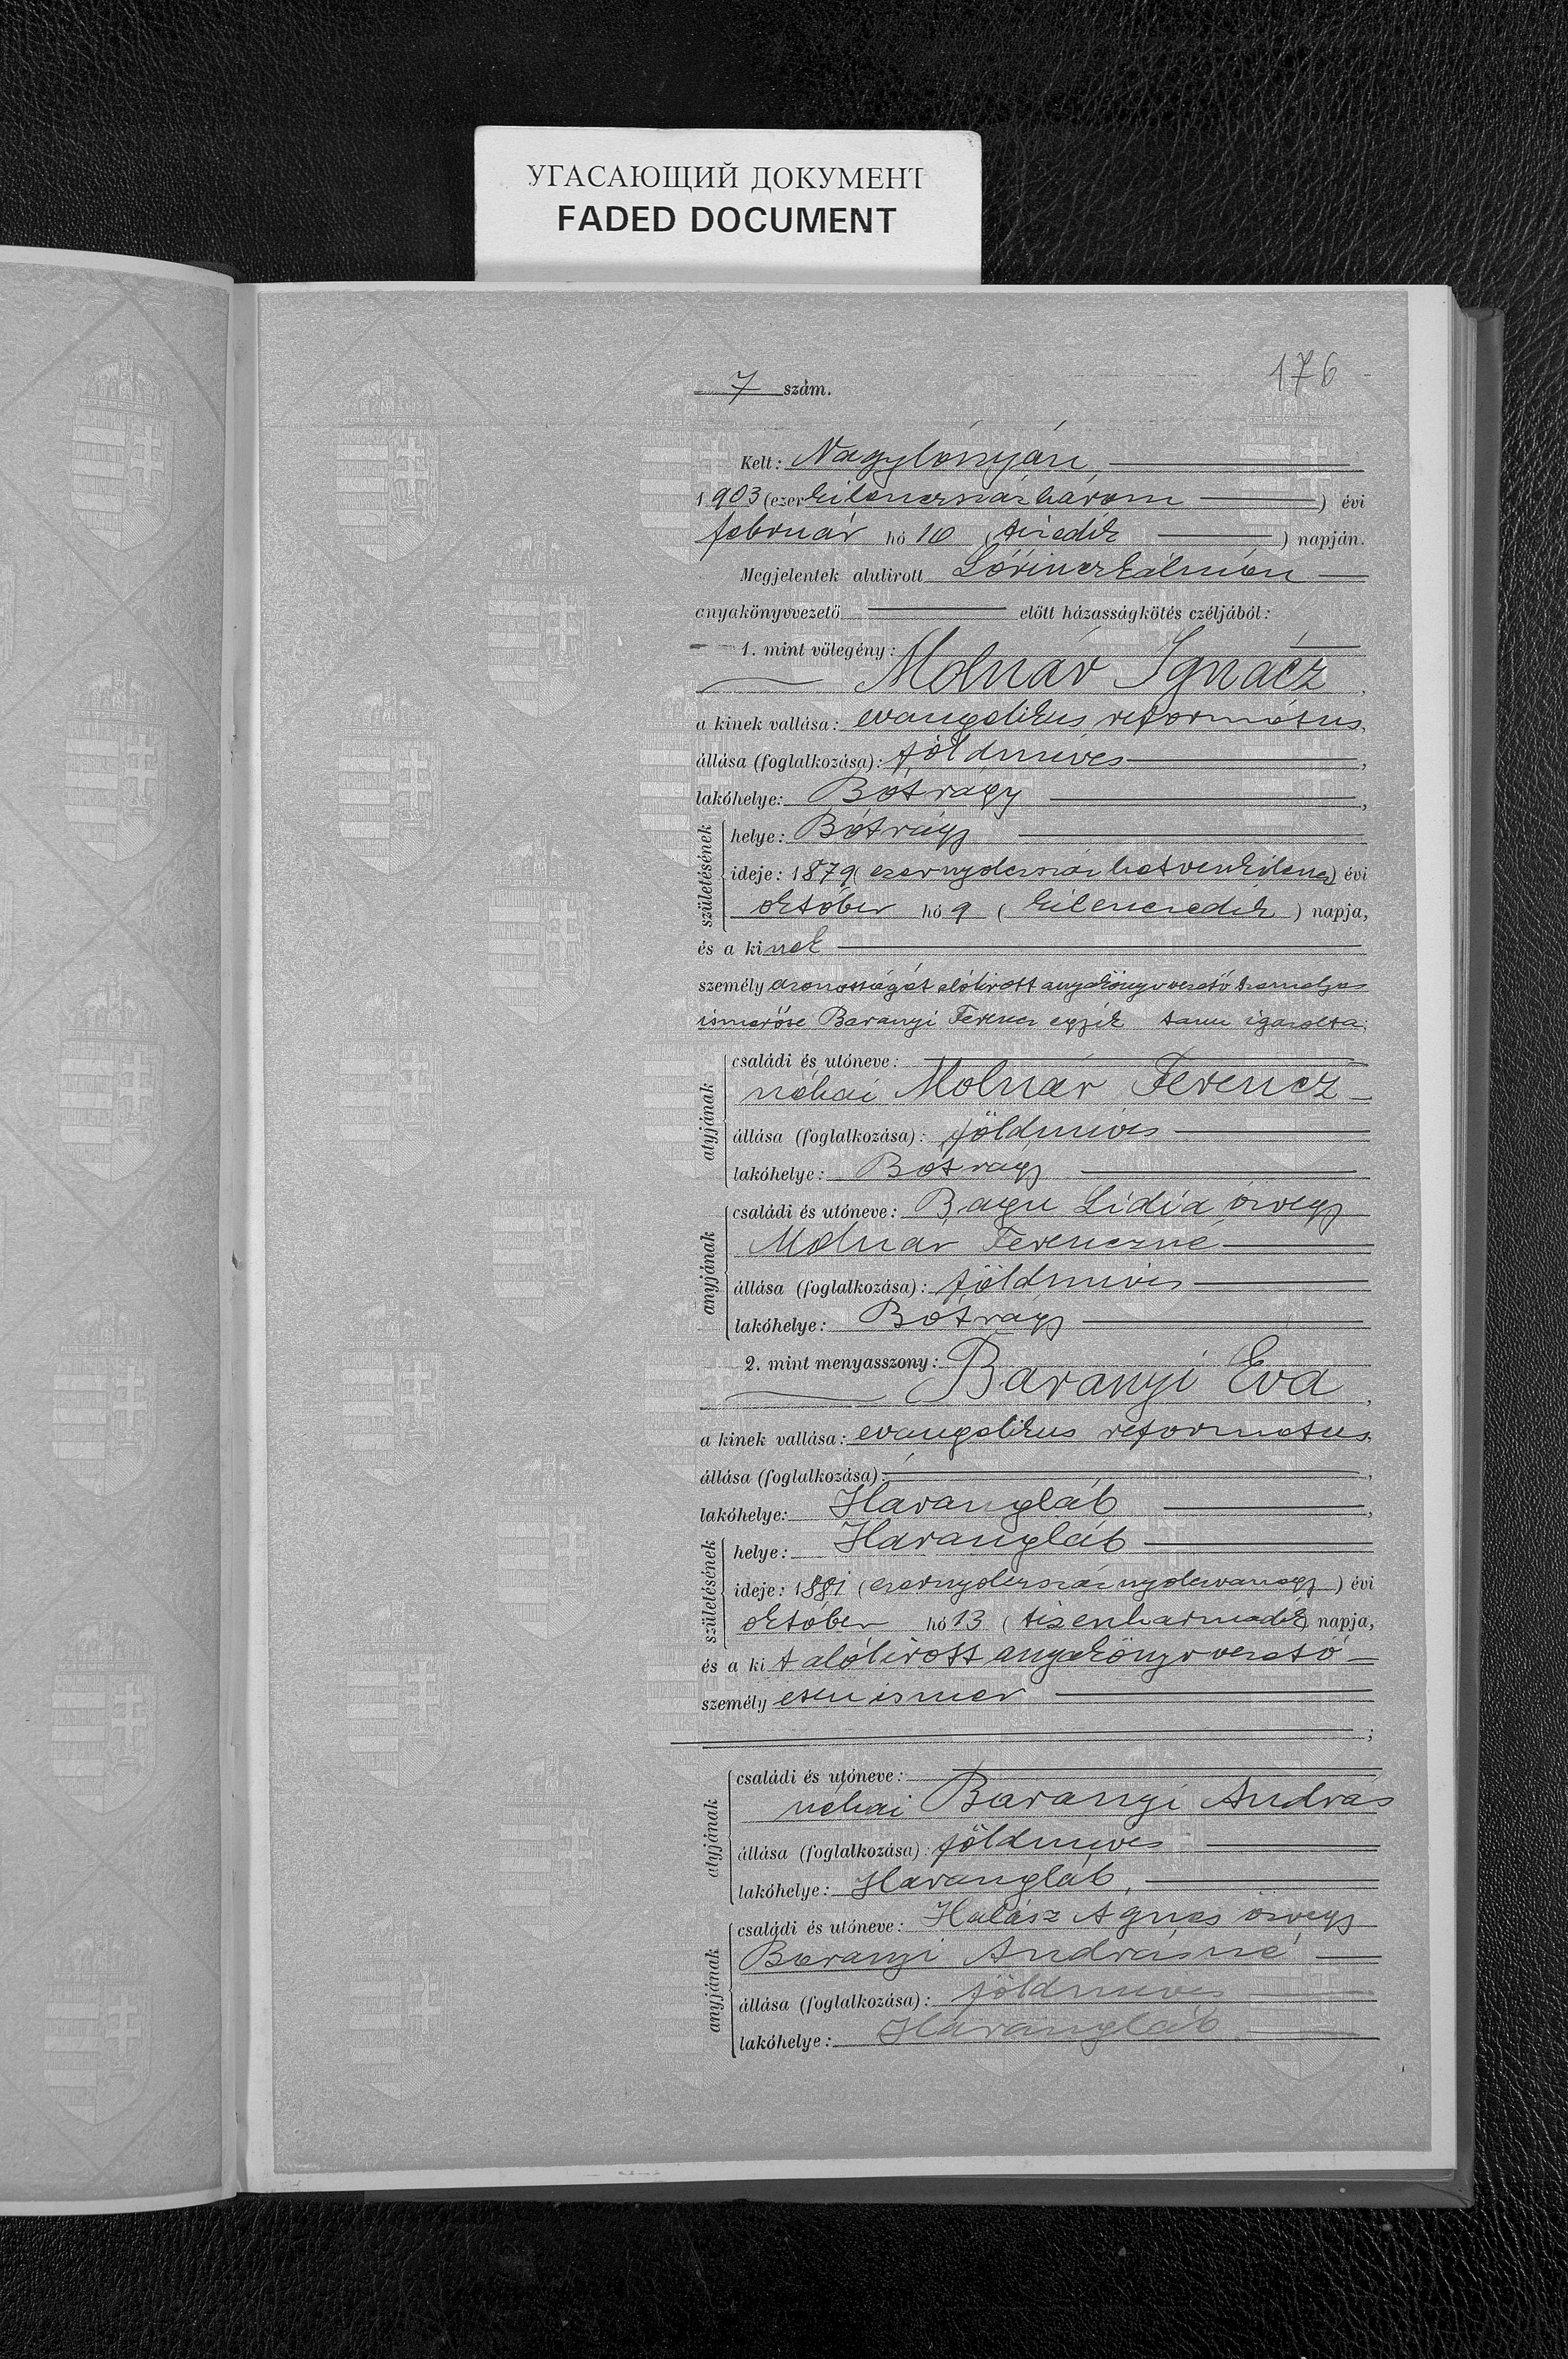 УГАСАЮЩИЙ ДОКУМЕНТ
FADED DOCUMENT
176
7 szám.
Kelt: Nagylónyán
1903 (ezerkilenczszázhárom) évi
február hó 10 (tizedik) napján.
Megjelentek alulirott Lőrincz Kálmán
anyakönyvvezető előtt házasságkötés czéljából:
1. mint vőlegény:
Molnár Ignácz,
a kinek vallása: evangelikus református,
állása (foglalkozása): földmíves,
lakóhelye: Bótrágy,
születésének
helye: Bótrágy
ideje: 1879 (ezernyolczszázhetvenkilencz) évi
október hó 9 (kilenczedik) napja,
és a kinek
személyazonosságát alólirott anyakönyvvezető személyes
ismerőse Baranyi Ferencz egyik tanu igazolta;
atyjának
családi és utóneve:
néhai Molnár Ferencz
állása (foglalkozása): földmíves
lakóhelye: Bótrágy
anyjának
családi és utóneve: Bagu Lidia özvegy
Molnár Ferenczné
állása (foglalkozása): földmíves
lakóhelye: Bótrágy
2. mint menyasszony:
Baranyi Éva,
a kinek vallása: evangelikus református,
állása (foglalkozása):,
lakóhelye: Harangláb,
születésének
helye: Harangláb
ideje: 1881 (ezernyolczszáznyolczvanegy) évi
október hó 13 (tizenharmadik) napja,
és a kit alólirott anyakönyvvezető
személyesen ismer
;
atyjának
családi és utóneve:
néhai Baranyi András
állása (foglalkozása): földmíves
lakóhelye: Harangláb,
anyjának
családi és utóneve: Halász Ágnes özvegy
Baranyi Andrásné
állása (foglalkozása): földmíves
lakóhelye: Harangláb